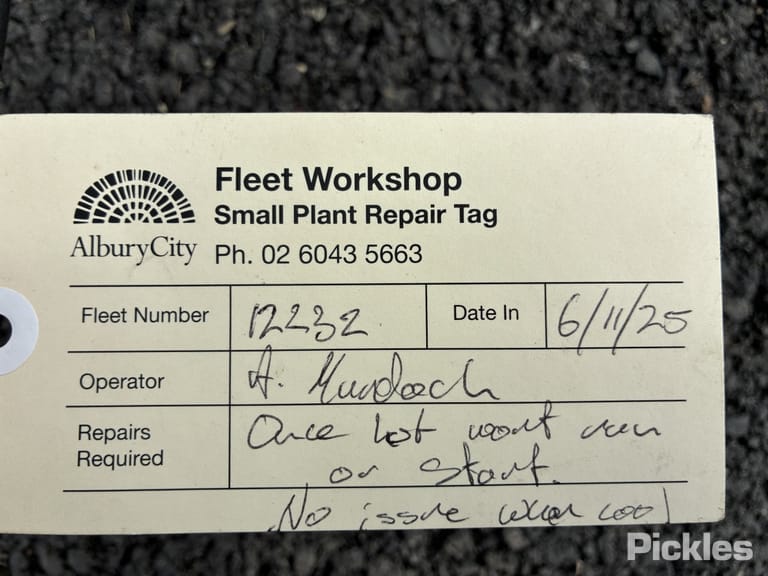 Fleet Workshop
Small Plant Repair Tag
AlburyCity
Ph. 02 6043 5663
Fleet Number 12232 Date In 6/11/25
Operator A. Murdoch
Repairs Required Once hot wont run
or start.
No issue when cool
Pickles